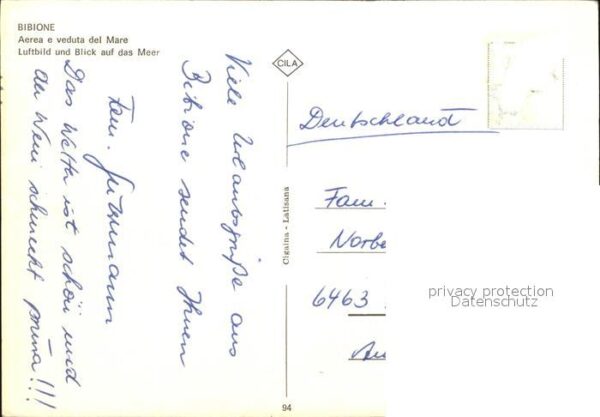 BIBIONE
Aerea e veduta del Mare
Luftbild und Blick auf das Meer
CILA
Viele Urlaubsgrüße aus
Bibione sendet Ihnen
Fam.
Das Wetter ist schön und
der Wein schmeckt prima!!!
Cigaina - Latisana
94
Deutschland
Fam.
Norbe
6463
privacy protection
Datenschutz